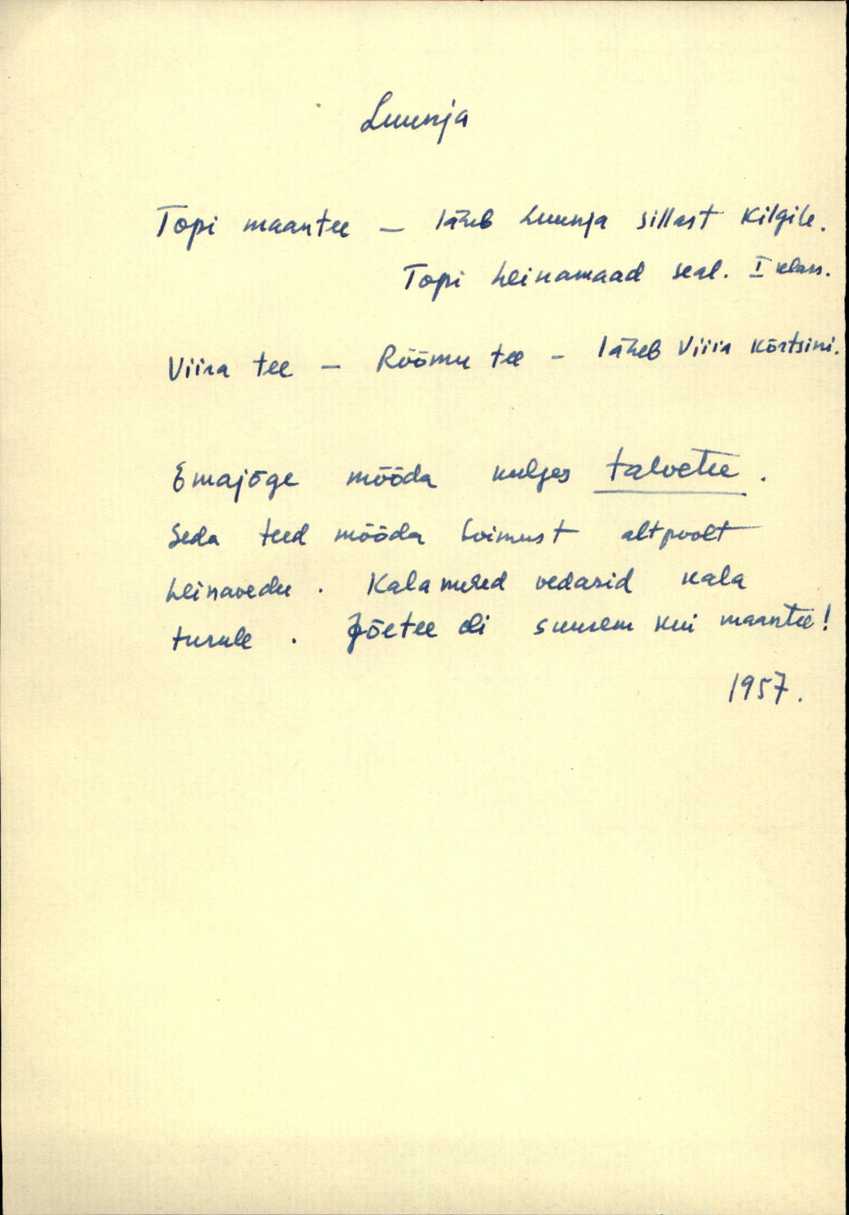 Luunja
Topi maantee – läheb Luunja sillast Kilgile.
Topi heinamaad seal. I klass.
Viira tee – Rõõmu tee – läheb Viira kõrtsini.
Emajõge mööda kulges talvetee.
Seda teed mööda toimust altpoolt
heinavedu. Kalamehed vedasid kala
turule. Jõetee oli suurem kui maantee!
1957.